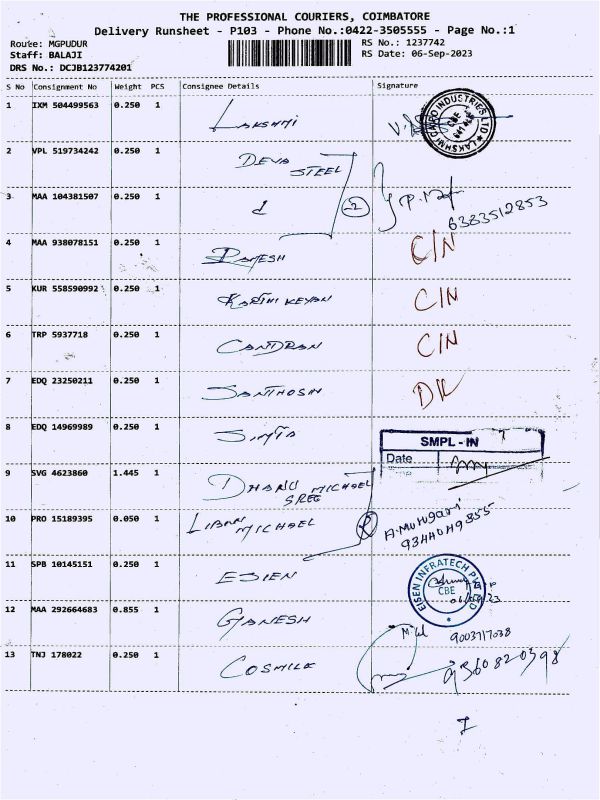 THE PROFESSIONAL COURIERS, COIMBATORE
Delivery Runsheet - P103 - Phone No.:0422-3505555 - Page No.:1
Route: MGPUDUR
RS No.: 1237742
Staff: BALAJI
RS Date: 06-Sep-2023
DRS No.: DCJB123774201
S No Consignment No Weight PCS Consignee Details Signature
1 IXM 504499563 0.250 1 LAKSHMI
LAKSHMI CAIPO INDUSTRIES LTD
CBE
2 VPL 519734242 0.250 1 DEVA STEEL
3 MAA 104381507 0.250 1
2
6383512853
4 MAA 938078151 0.250 1 RAMESH C/N
5 KUR 558590992 0.250 1 KARTHIKEYAN C/N
6 TRP 5937718 0.250 1 CANDRAN C/N
7 EDQ 23250211 0.250 1 SANTHOSH DK
8 EDQ 14969989 0.250 1
SMPL - IN
Date
9 SVG 4623860 1.445 1 DHANU MICHAEL
SREE
10 PRO 15189395 0.050 1 MICHAEL
11 SPB 10145151 0.250 1 EJIEN
EISEN INFRATECH PVT
CBE
12 MAA 292664683 0.855 1 GANESH
9003717038
13 TNJ 178022 0.250 1 COSMILE
9360820398